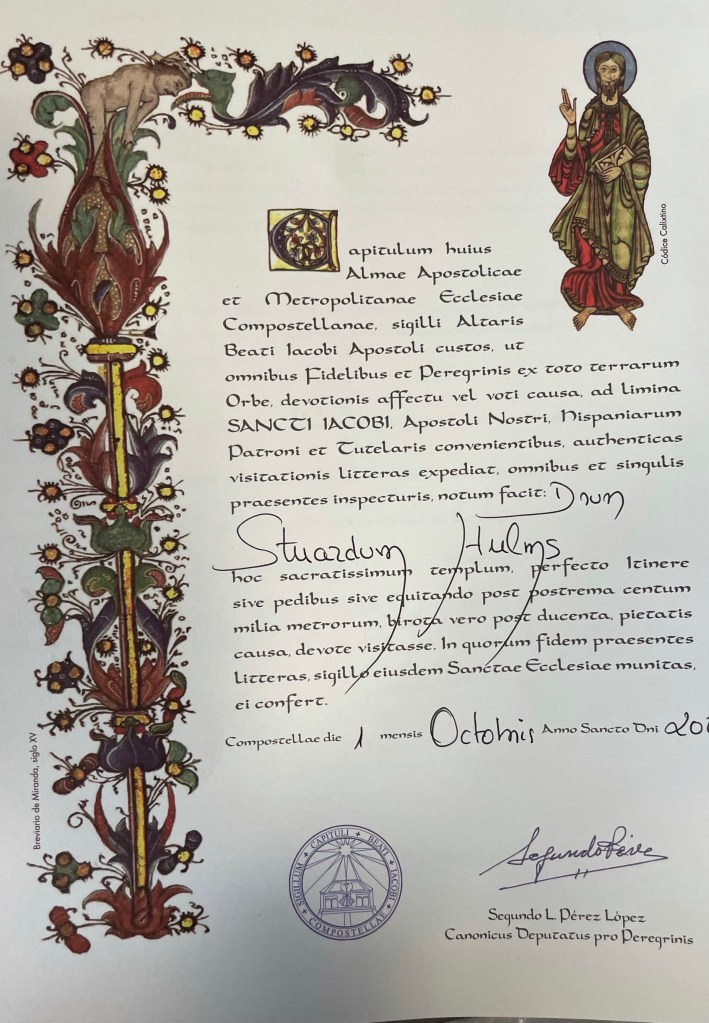 Códice Calixtino
Capitulum huius
Almae Apostolicae
et Metropolitanae Ecclesiae
Compostellanae, sigilli Altaris
Beati Iacobi Apostoli custos, ut
omnibus Fidelibus et Peregrinis ex toto terrarum
Orbe, devotionis affectu vel voti causa, ad limina
SANCTI IACOBI, Apostoli Nostri, Hispaniarum
Patroni et Tutelaris convenientibus, authenticas
visitationis litteras expediat, omnibus et singulis
praesentes inspecturis, notum facit: Dnum
Stuardum Hulms
hoc sacratissimum templum, perfecto Itinere
sive pedibus sive equitando post postrema centum
milia metrorum, birota vero post ducenta, pietatis
causa, devote visitasse. In quorum fidem praesentes
litteras, sigillo eiusdem Sanctae Ecclesiae munitas,
ei confert.
Compostellae die 1 mensis Octobris Anno Sancto Dni
Breviario de Miranda, siglo XV
SIGILLUM CAPITULI BEATI IACOBI COMPOSTELLAE
Segundo Pérez
Segundo L. Pérez López
Canonicus Deputatus pro Peregrinis